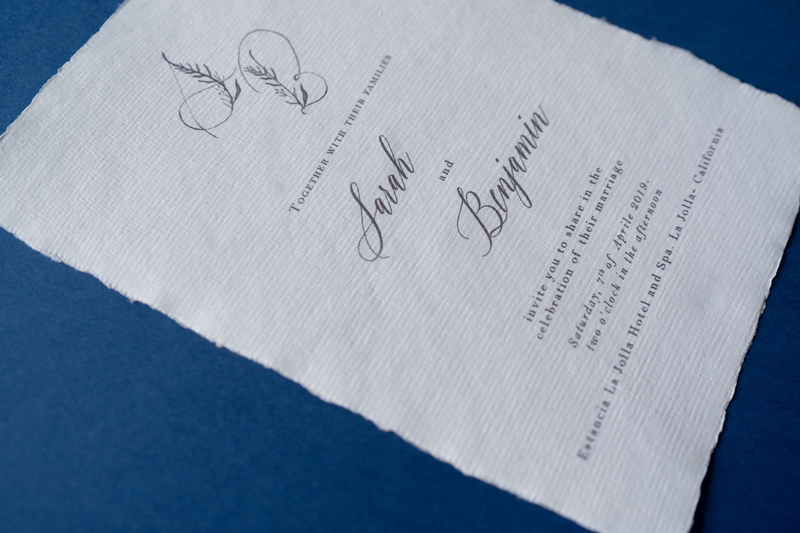 TOGETHER WITH THEIR FAMILIES
Sarah
and
Benjamin
invite you to share in the
celebration of their marriage
Saturday, 7th of Aprile 2019,
two o'clock in the afternoon
Estancia La Jolla Hotel and Spa, La Jolla- California